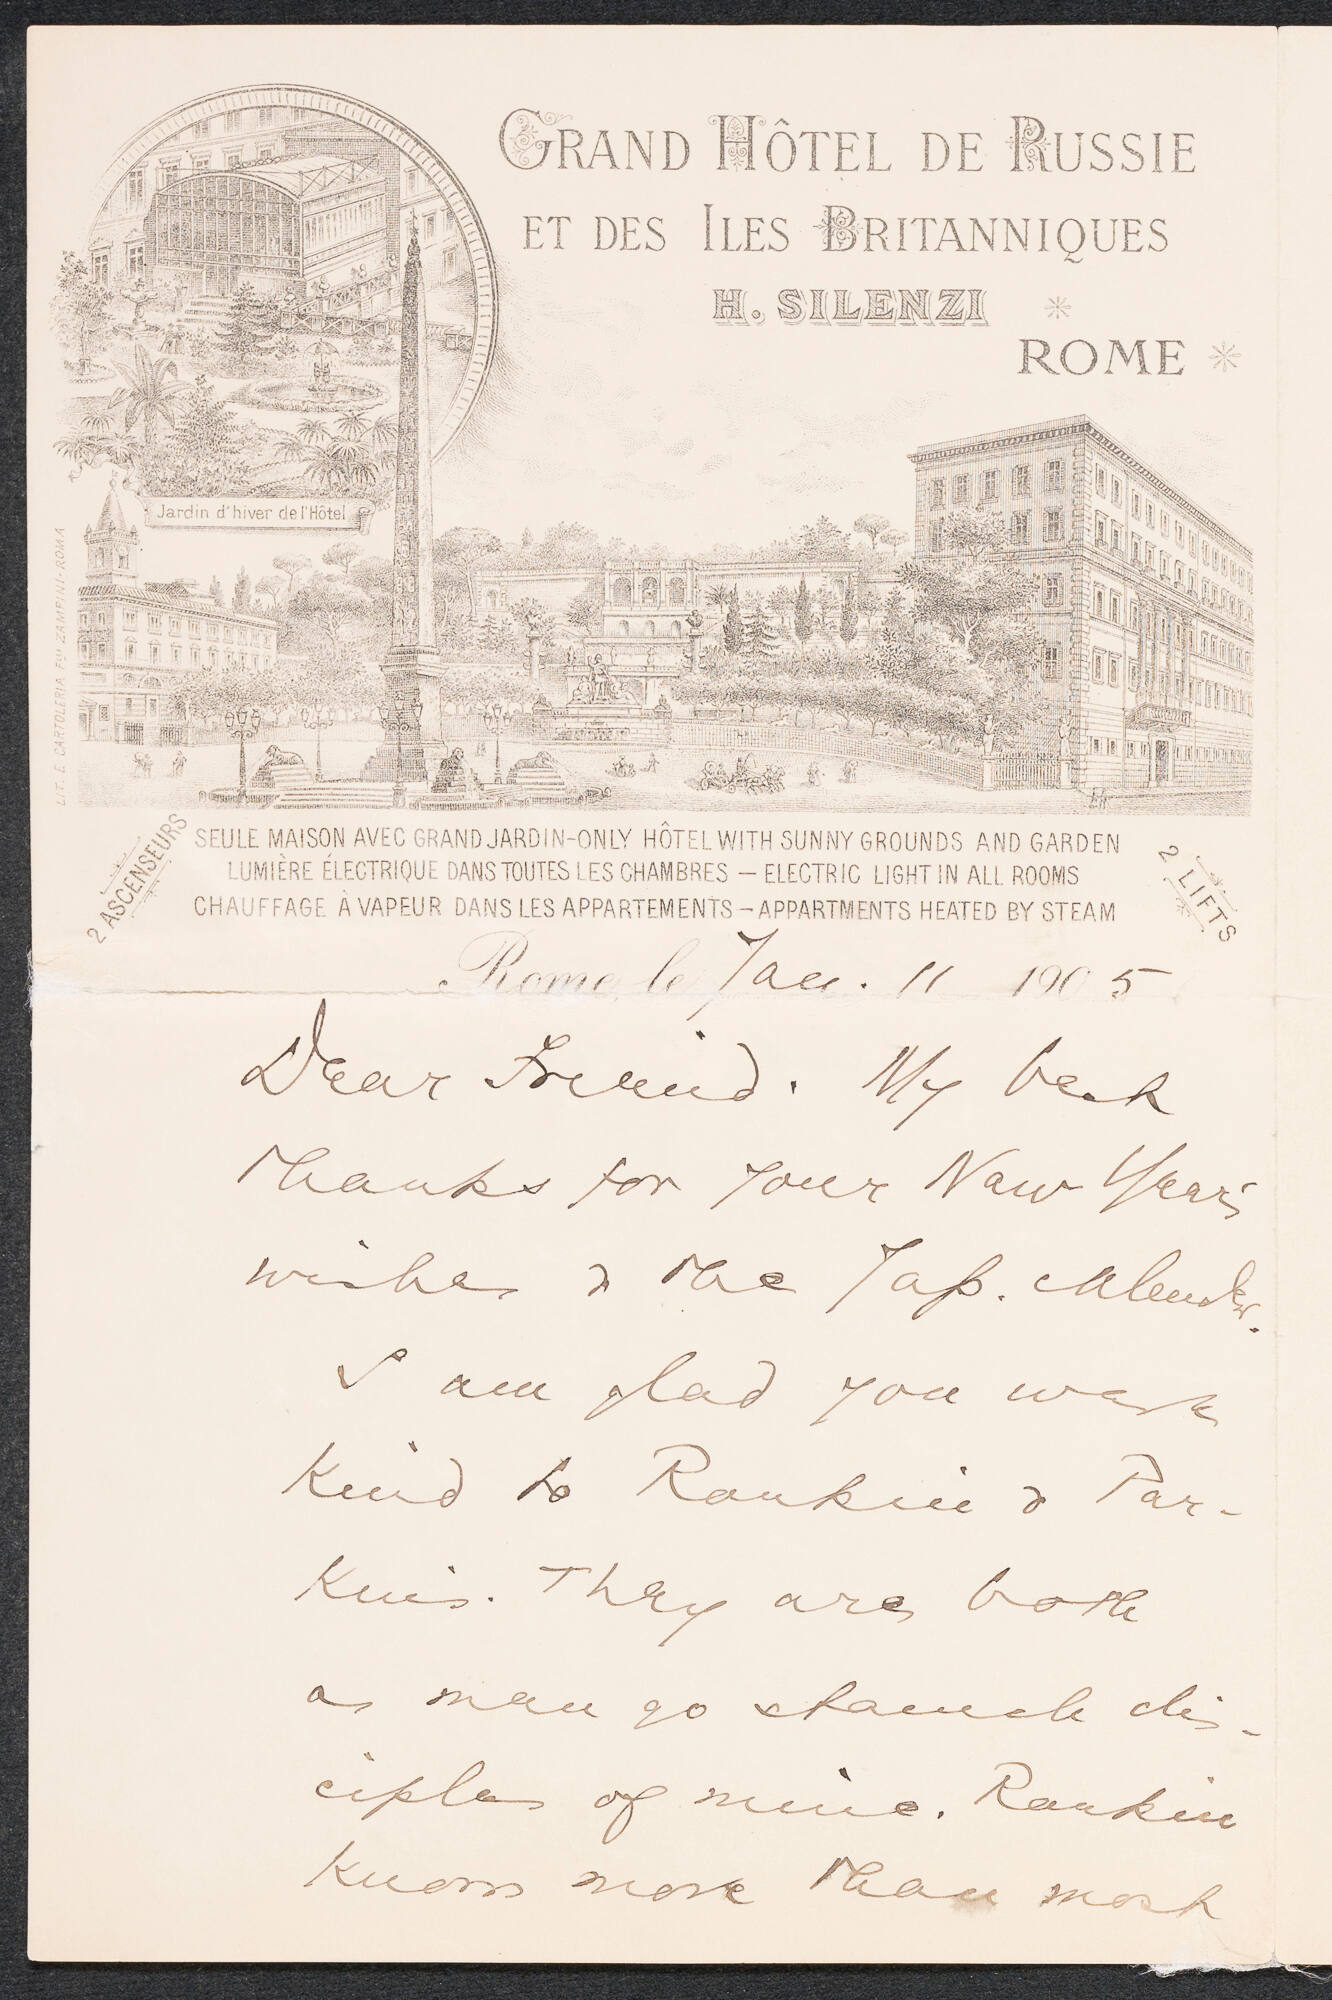 GRAND HÔTEL DE RUSSIE
ET DES ILES BRITANNIQUES
H. SILENZI
ROME
Jardin d'hiver de l'Hôtel
LIT. E CARTOLERIA F.LLI ZAMPINI-ROMA
2 ASCENSEURS
SEULE MAISON AVEC GRAND JARDIN-ONLY HÔTEL WITH SUNNY GROUNDS AND GARDEN
LUMIÈRE ÉLECTRIQUE DANS TOUTES LES CHAMBRES – ELECTRIC LIGHT IN ALL ROOMS
CHAUFFAGE À VAPEUR DANS LES APPARTEMENTS – APPARTMENTS HEATED BY STEAM
2 LIFTS
Rome, le Jan. 11 1905
Dear Friend. My best
thanks for your New Year's
wishes & the Jap. Calender.
I am glad you were
kind to Rankin & Par-
kins. They are both
as men go staunch dis-
ciples of mine. Rankin
knows more than most